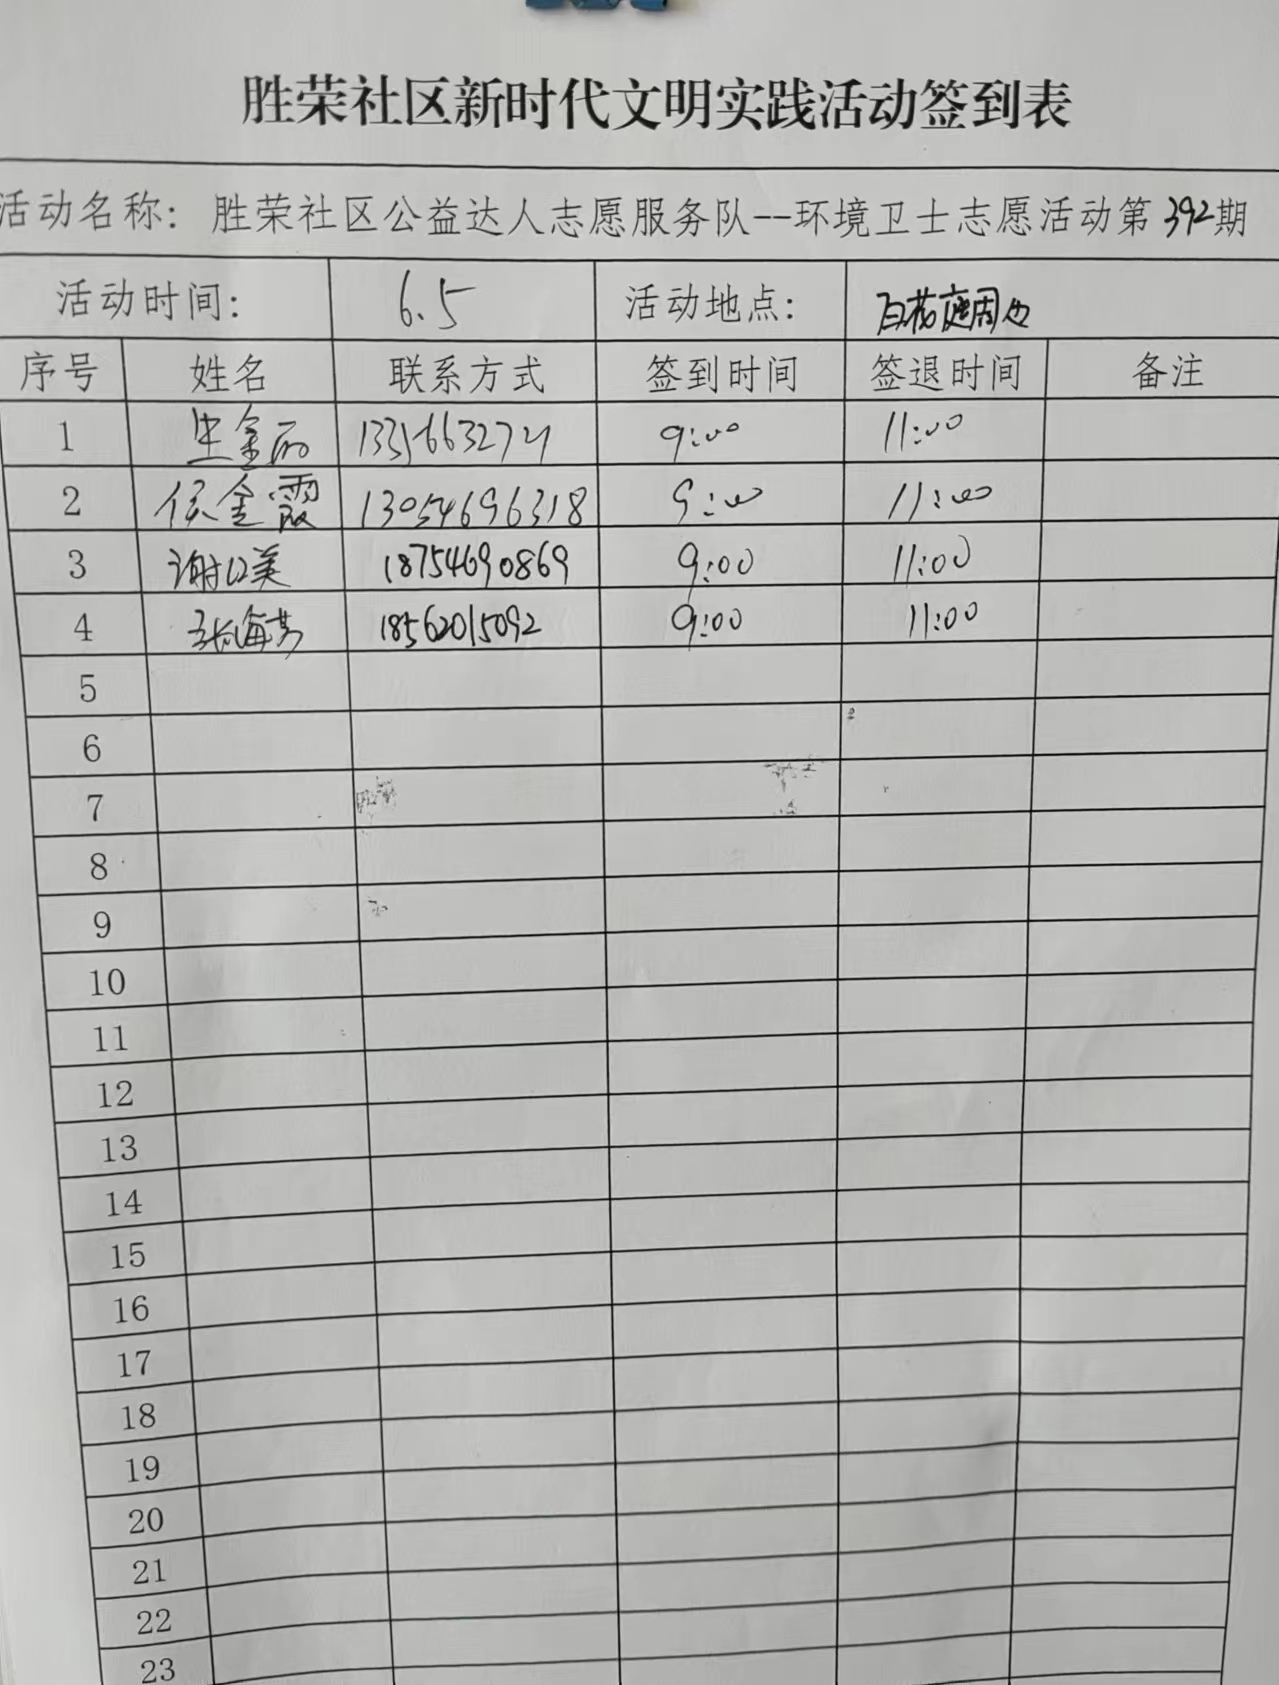 胜荣社区新时代文明实践活动签到表
活动名称：胜荣社区公益达人志愿服务队--环境卫士志愿活动第392期
活动时间： 6.5 活动地点： 百花庭周边
序号 姓名 联系方式 签到时间 签退时间 备注
1 金丽 9:00 11:00
2 侯金霞 13054696318 9:00 11:00
3 谢 美 18754690869 9:00 11:00
4 张海芳 18562015092 9:00 11:00
5
6
7
8
9
10
11
12
13
14
15
16
17
18
19
20
21
22
23